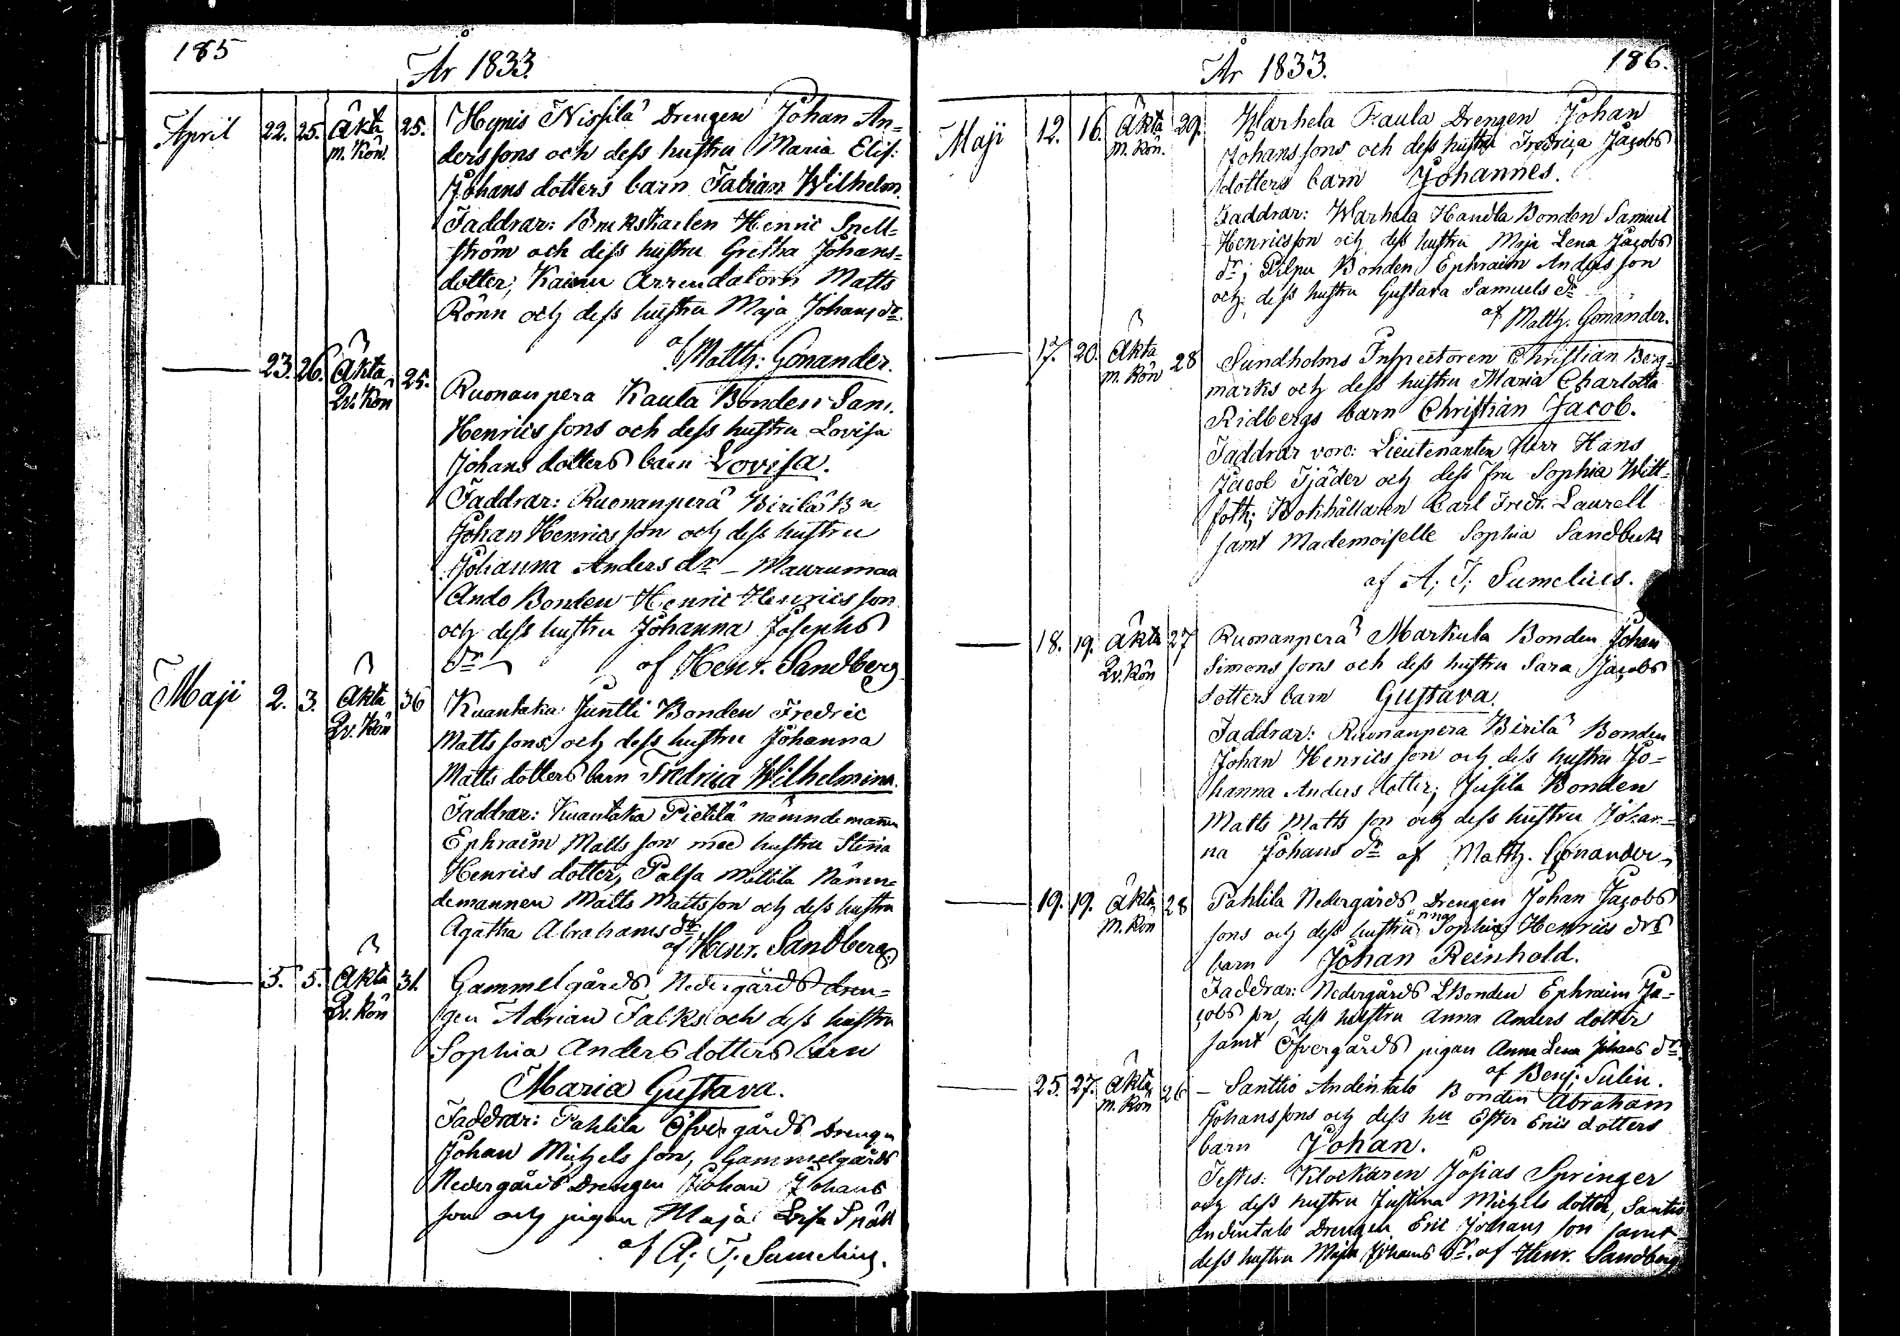 185
År 1833.
April 22. 25. Äkta 25. Hypis Nissilä Drengen Johan An=
m. Kön. derssons och dess hustru Maria Elis:
Johans dotters barn Fabian Wilhelm.
Faddrar: Brukskarlen Henric Snell=
ström och dess hustru Gretha Johans=
dotter; Kaisu Arrendatorn Matts
Rönn och dess hustru Maja Johans dr.
af Matth: Gonander.
23. 26. Äkta 25.
Qv. Kön Ruonanpera Kaula Bonden Sam.
Henrics sons och dess hustru Lovisa
Johans dotters barn Lovisa.
Faddrar: Ruonanperä Birilä Bn
Johan Henricsson och dess hustru
Johanna Anders dr – Maurumaa
Ando Bonden Henric Henrics son
och dess hustru Johanna Josephs
dr af Henr. Sandberg
Maji 2. 3. Äkta 36 Kuantaka Juntti Bonden Fredric
Qv. Kön Matts sons och dess hustru Johanna
Matts dotters barn Fredrica Wilhelmina.
Faddrar: Kuantaka Pietilä nämndemannen
Ephraim Matts son med hustru Stina
Henrics dotter, Palsa Mattila Nämn=
demannen Matts Mattsson och dess hustru
Agatha Abrahams dr
af Henr. Sandberg.
5. 5. Äkta 31. Gammelgårds Nedergårds dren=
Qv. Kön gen Adrian Falks och dess hustru
Sophia Anders dotters barn
Maria Gustava.
Faddrar: Pahlila Öfvergårds Drengen
Johan Michels son, Gammelgårds
Nedergårds Drengen Johan Johans
son och pigan Maja Lisa Snäll
af A. F. Sumelius.
186.
År 1833.
Maji 12. 16. Äkta 29. Warhela Faula Drengen Johan
m. Kön. Johanssons och dess hustru Fredrica Jacobs
dotters barn Johannes.
Faddrar: Warhela Handla Bonden Samuel
Henricsson och dess hustru Maja Lena Jacobs
dr; Pilpu Bonden Ephraim Andersson
och dess hustru Gustava Samuels dr
af Matth. Gonander.
17. 20. Äkta 28 Sundholms Inspectoren Christian Berg=
m. Kön marks och dess hustru Maria Charlotta
Ridbergs barn Christian Jacob.
Faddrar voro: Lieutenanten Herr Hans
Jacob Tjäder och dess fru Sophia Witt=
foth; Bokhållaren Carl Fredr. Laurell
samt Mademoiselle Sophia Sandbeck
af A. F. Sumelius.
18. 19. Äkta 27 Ruonanperä Markula Bonden Johan
Qv. Kön Simons sons och dess hustru Sara Jacobs
dotters barn Gustava.
Faddrar: Ruonanpera Birilä Bonden
Johan Henrics son och dess hustru Jo=
hanna Anders dotter; Jusila Bonden
Matts Matts son och dess hustru Johan=
na Johans dr af Matth. Gonander.
19. 19. Äkta 28 Pahlila Nedergårds Drengen Johan Jacobs
m. Kön sons och dess hustru Anna Sophia Henrics drs
barn Johan Reinhold.
Faddrar: Nedergårds Bonden Ephraim Ja=
cobs son, dess hustru Anna Anders dotter
samt Öfvergårds pigan Anna Lena Johans dr.
af Benj. Sulin.
25. 27. Äkta 26 – Santtio Andintalo Bonden Abraham
m. Kön Johans sons och dess hu Ester Erics dotters
barn Johan.
Testes: Klockaren Josias Springer
och dess hustru Justina Michels dotter, Santio
Andintalo Drengen Eric Johans son samt
dess hustru Maja Johans dr. af Henr. Sandberg